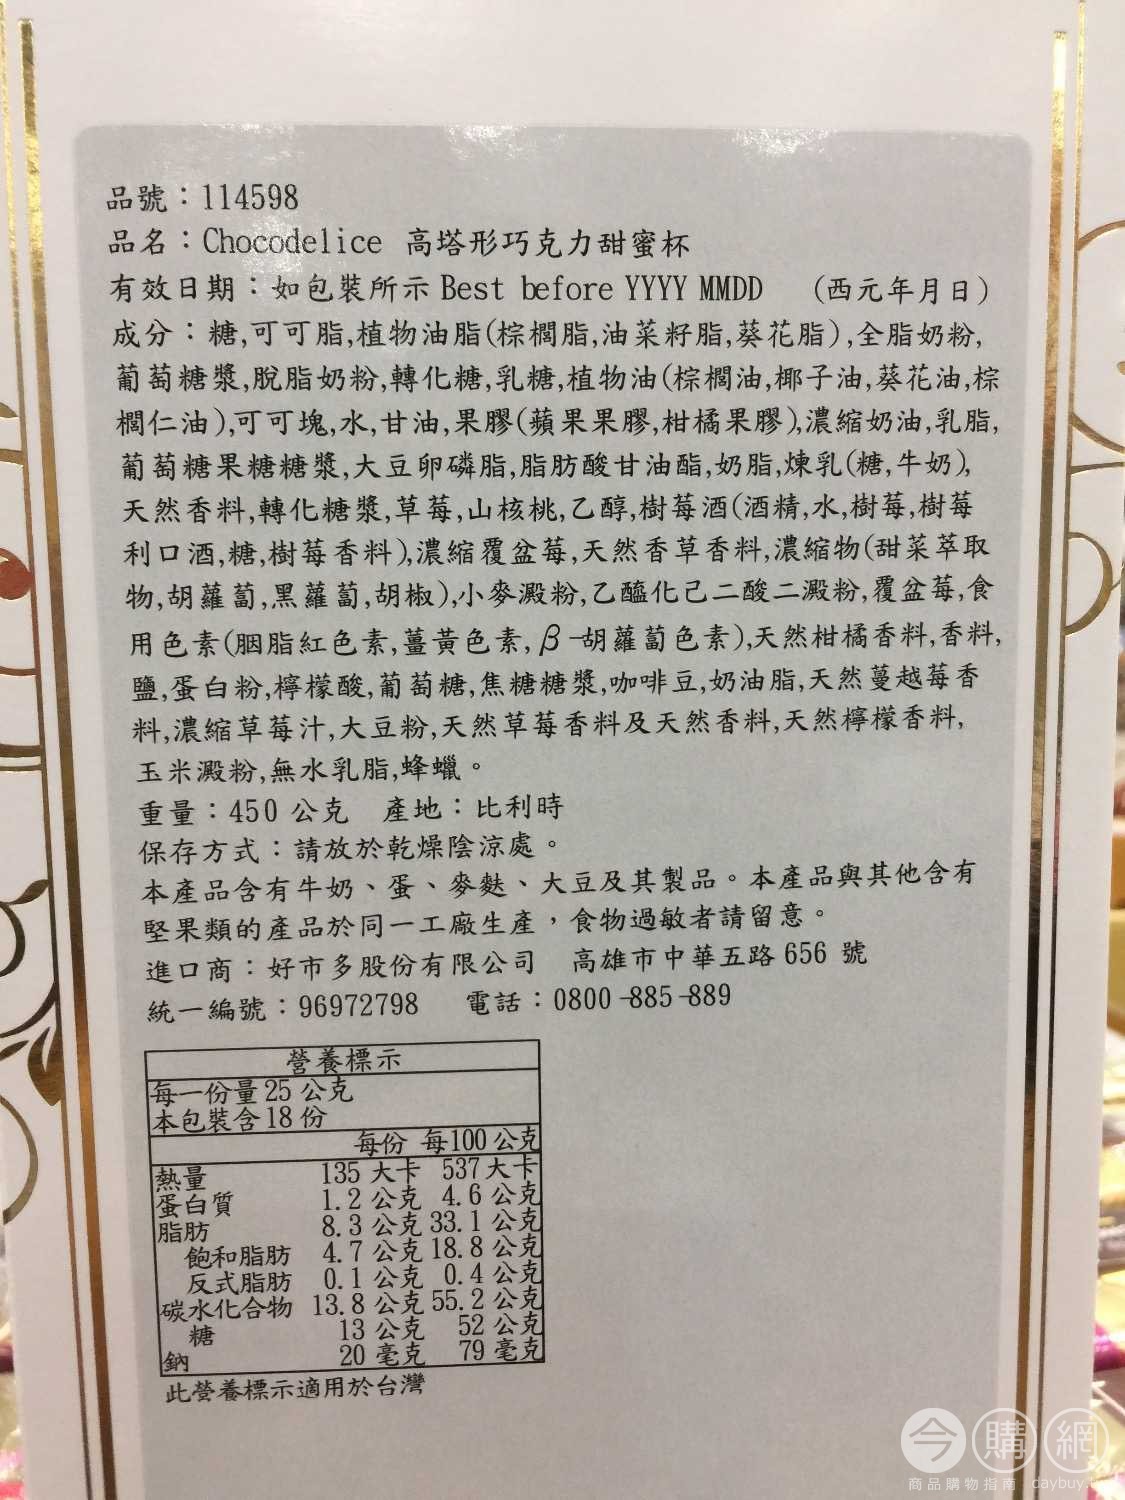 品號：114598
品名：Chocodelice 高塔形巧克力甜蜜杯
有效日期：如包裝所示 Best before YYYY MMDD (西元年月日)
成分：糖,可可脂,植物油脂(棕櫚脂,油菜籽脂,葵花脂),全脂奶粉,
葡萄糖漿,脫脂奶粉,轉化糖,乳糖,植物油(棕櫚油,椰子油,葵花油,棕
櫚仁油),可可塊,水,甘油,果膠(蘋果果膠,柑橘果膠),濃縮奶油,乳脂,
葡萄糖果糖糖漿,大豆卵磷脂,脂肪酸甘油酯,奶脂,煉乳(糖,牛奶),
天然香料,轉化糖漿,草莓,山核桃,乙醇,樹莓酒(酒精,水,樹莓,樹莓
利口酒,糖,樹莓香料),濃縮覆盆莓,天然香草香料,濃縮物(甜菜萃取
物,胡蘿蔔,黑蘿蔔,胡椒),小麥澱粉,乙醯化己二酸二澱粉,覆盆莓,食
用色素(胭脂紅色素,薑黃色素,β-胡蘿蔔色素),天然柑橘香料,香料,
鹽,蛋白粉,檸檬酸,葡萄糖,焦糖糖漿,咖啡豆,奶油脂,天然蔓越莓香
料,濃縮草莓汁,大豆粉,天然草莓香料及天然香料,天然檸檬香料,
玉米澱粉,無水乳脂,蜂蠟。
重量：450 公克 產地：比利時
保存方式：請放於乾燥陰涼處。
本產品含有牛奶、蛋、麥麩、大豆及其製品。本產品與其他含有
堅果類的產品於同一工廠生產，食物過敏者請留意。
進口商：好市多股份有限公司 高雄市中華五路 656 號
統一編號：96972798 電話：0800-885-889
營養標示
每一份量 25 公克
本包裝含 18 份
每份 每100公克
熱量 135 大卡 537 大卡
蛋白質 1.2 公克 4.6 公克
脂肪 8.3 公克 33.1 公克
飽和脂肪 4.7 公克 18.8 公克
反式脂肪 0.1 公克 0.4 公克
碳水化合物 13.8 公克 55.2 公克
糖 13 公克 52 公克
鈉 20 毫克 79 毫克
此營養標示適用於台灣
今購網
商品購物指南 daybuy.t